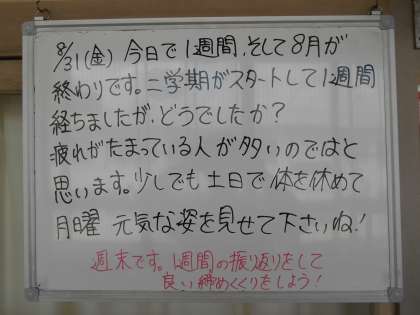 8/31(金) 今日で1週間、そして8月が
終わりです。二学期がスタートして1週間
経ちましたが、どうでしたか?
疲れがたまっている人が多いのではと
思います。少しでも土日で体を休めて
月曜 元気な姿を見せて下さいね!
週末です。1週間の振り返りをして
良い締めくくりをしよう!